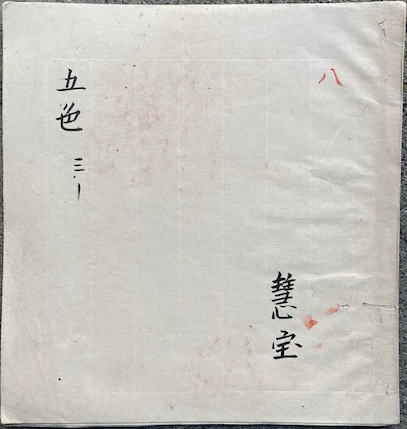 八
五色
三、一
慧宝